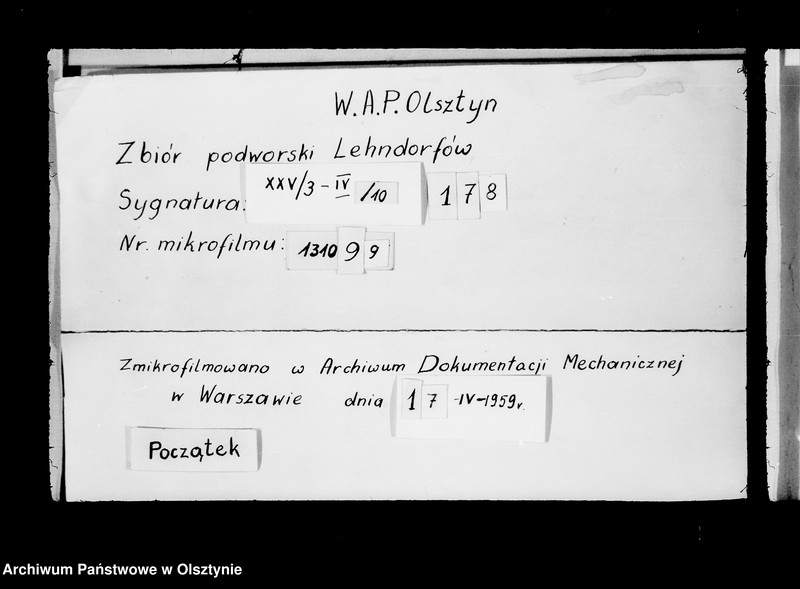 W.A.P. Olsztyn
Zbiór podworski Lehndorfów
Sygnatura: XXV/3 - IV /10 178
Nr. mikrofilmu: 1310 9 9
Zmikrofilmowano w Archiwum Dokumentacji Mechanicznej
w Warszawie dnia 17 -IV-1959r.
Początek
Archiwum Państwowe w Olsztynie